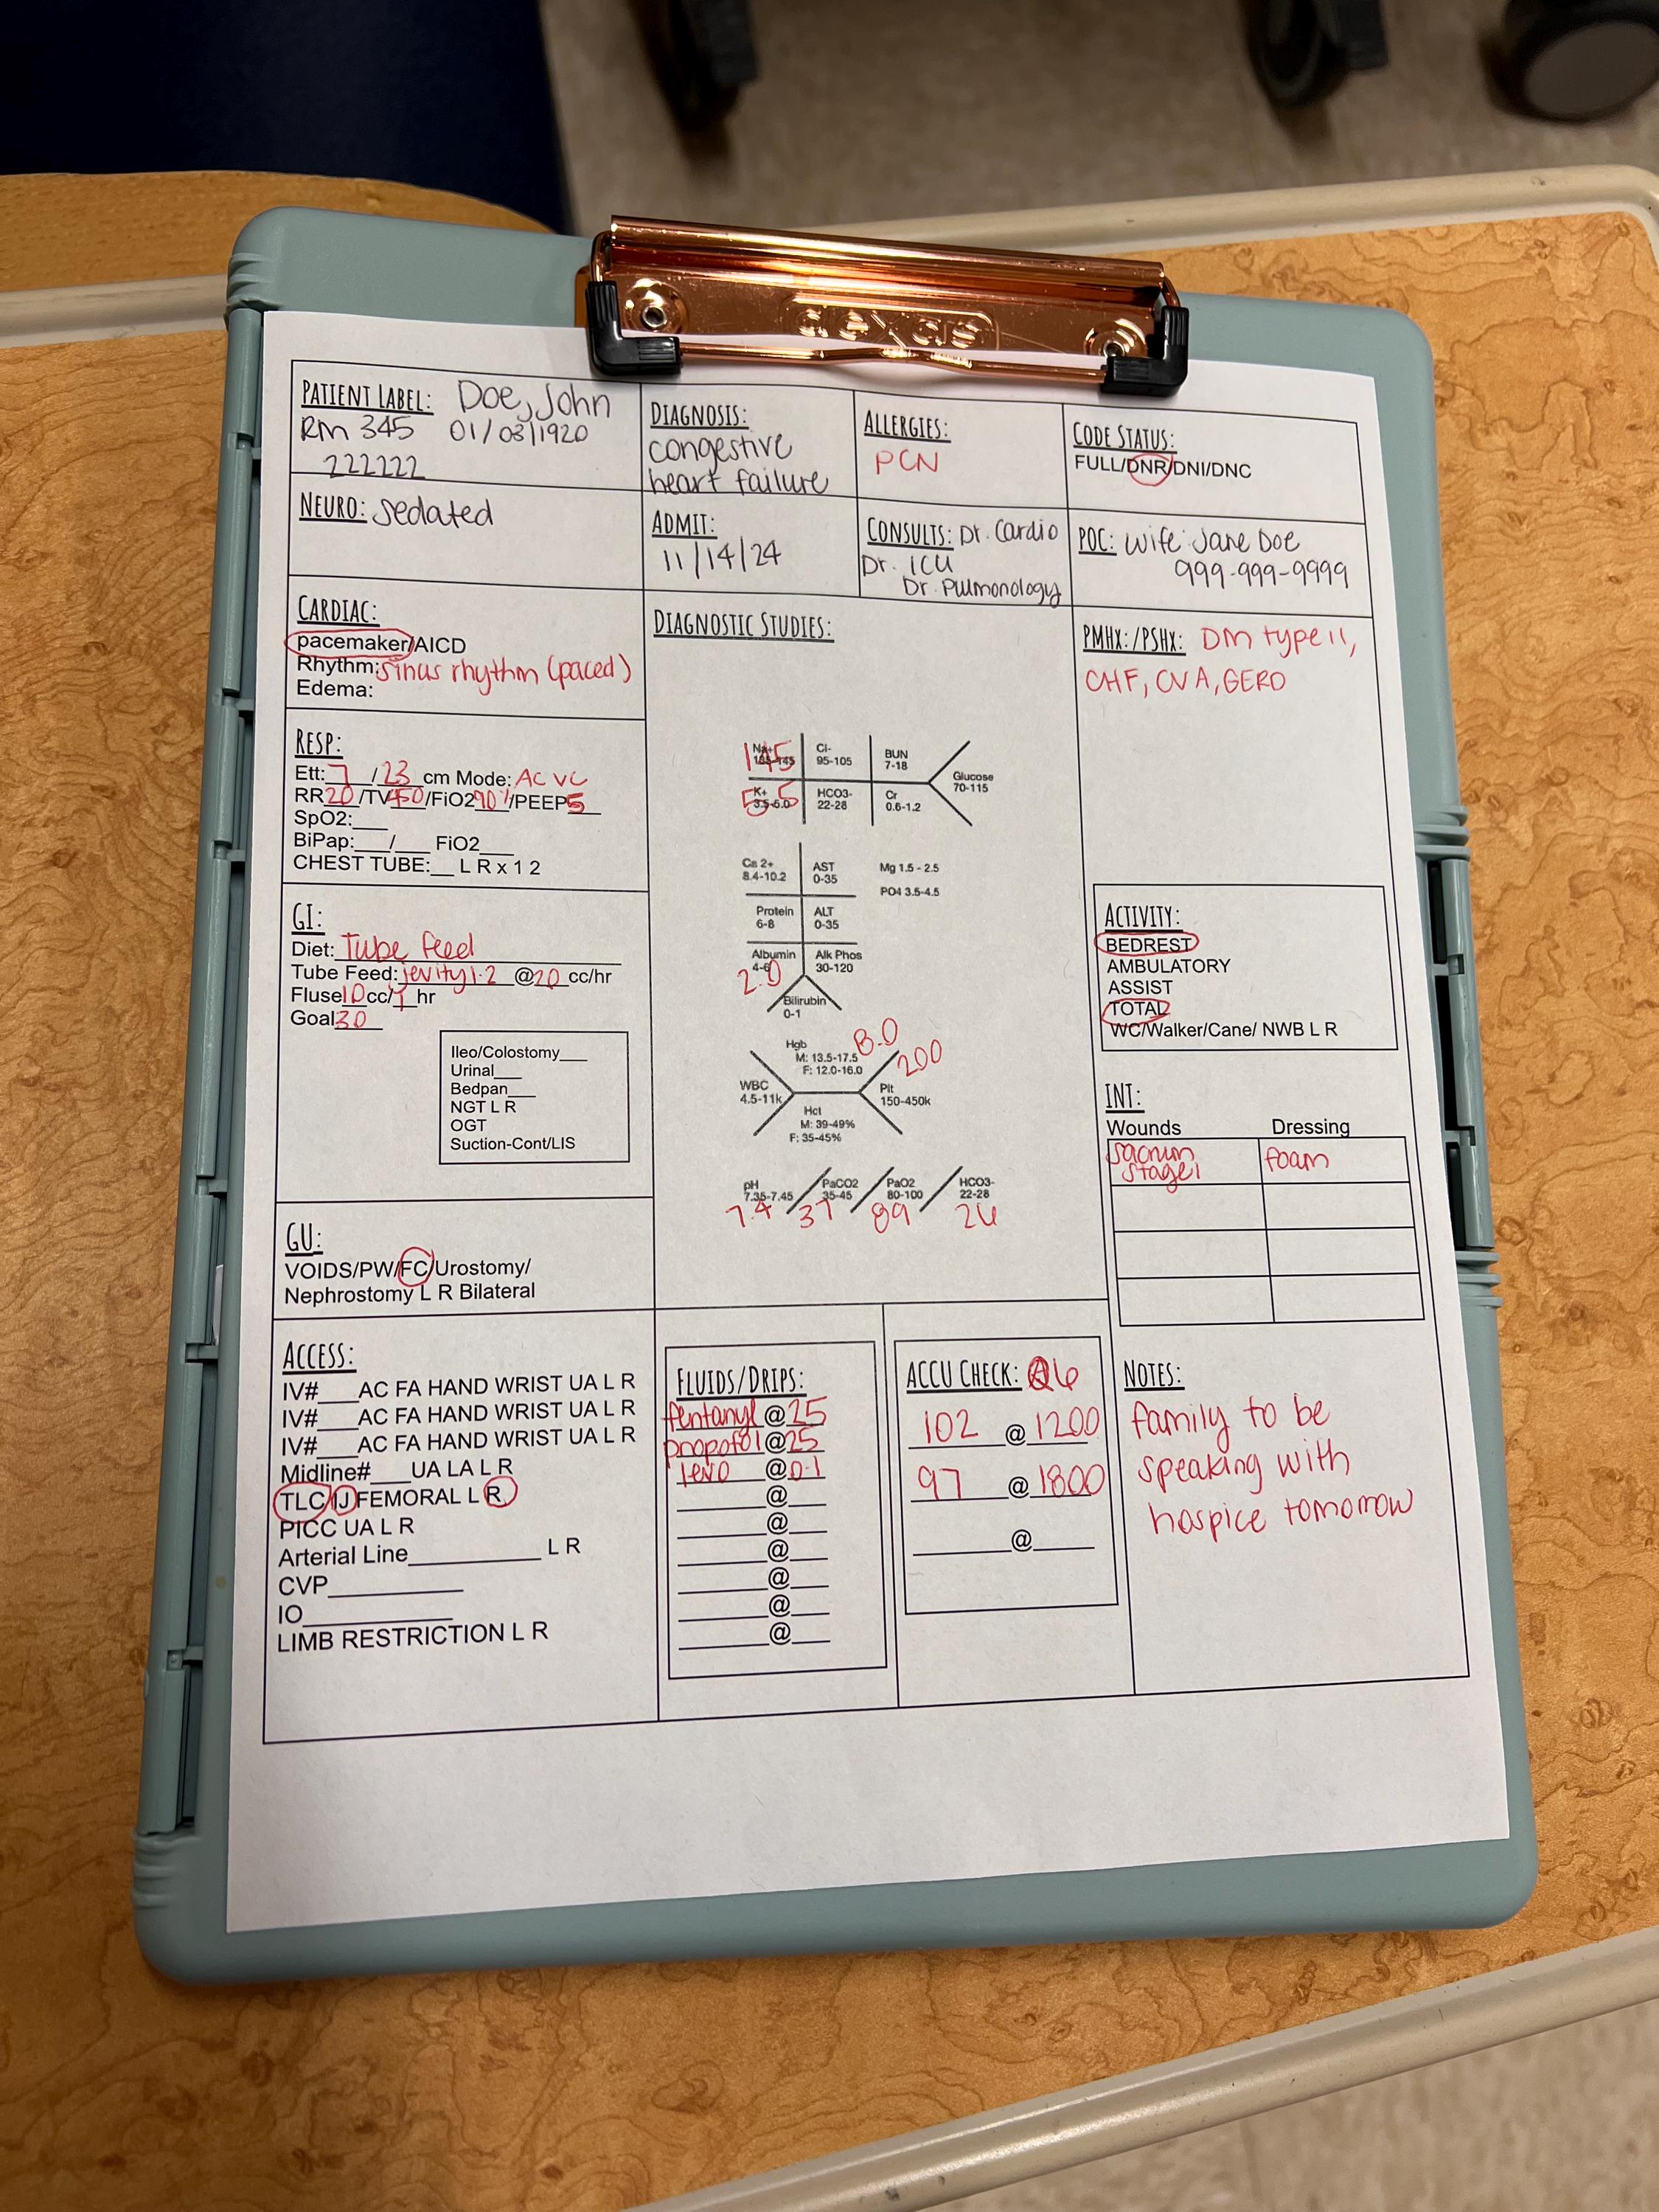 PATIENT LABEL: Doe, John
RM 345 01/03/1920
222222
DIAGNOSIS:
congestive
heart failure
ALLERGIES:
PCN
CODE STATUS:
FULL/DNR/DNI/DNC
NEURO: Sedated
ADMIT:
11/14/24
CONSULTS: Dr. Cardio
Dr. ICU
Dr. Pulmonology
POC: Wife Jane Doe
999-999-9999
CARDIAC:
pacemaker/AICD
Rhythm: sinus rhythm (paced)
Edema:
RESP:
Ett: 7 / 23 cm Mode: AC VC
RR 20 /TV 450 /FiO2 90% /PEEP 5
SpO2:___
BiPap:___/___ FiO2___
CHEST TUBE:__ L R x 1 2
GI:
Diet: Tube feed
Tube Feed: jevity 1.2 @ 20 cc/hr
Fluse 10 cc/ 1 hr
Goal 30
Ileo/Colostomy___
Urinal___
Bedpan___
NGT L R
OGT
Suction-Cont/LIS
GU:
VOIDS/PW/FC/Urostomy/
Nephrostomy L R Bilateral
DIAGNOSTIC STUDIES:
Na+ 145
135-145
Cl-
95-105
BUN
7-18
Glucose
70-115
K+ 5.5
3.5-5.0
HCO3-
22-28
Cr
0.6-1.2
Ca 2+
8.4-10.2
AST
0-35
Mg 1.5 - 2.5
PO4 3.5-4.5
Protein
6-8
ALT
0-35
Albumin
4-6
2.0
Alk Phos
30-120
Bilirubin
0-1
Hgb
M: 13.5-17.5 8.0
F: 12.0-16.0
WBC
4.5-11k
200
Plt
150-450k
Hct
M: 39-49%
F: 35-45%
pH
7.35-7.45
7.4
PaCO2
35-45
37
PaO2
80-100
89
HCO3-
22-28
26
PMHX:/PSHX: DM type II,
CHF, CVA, GERD
ACTIVITY:
BEDREST
AMBULATORY
ASSIST
TOTAL
WC/Walker/Cane/ NWB L R
INT:
Wounds Dressing
Sacrum foam
Stage 1
ACCESS:
IV#___AC FA HAND WRIST UA L R
IV#___AC FA HAND WRIST UA L R
IV#___AC FA HAND WRIST UA L R
Midline#___UA LA L R
TLC IJ FEMORAL L R
PICC UA L R
Arterial Line___________ L R
CVP___________
IO____________
LIMB RESTRICTION L R
FLUIDS/DRIPS:
fentanyl @ 25
propofol @ 25
levo @ 0.1
______@___
______@___
______@___
______@___
______@___
______@___
ACCU CHECK: Q6
102 @ 1200
97 @ 1800
_______@_____
NOTES:
family to be
speaking with
hospice tomorrow